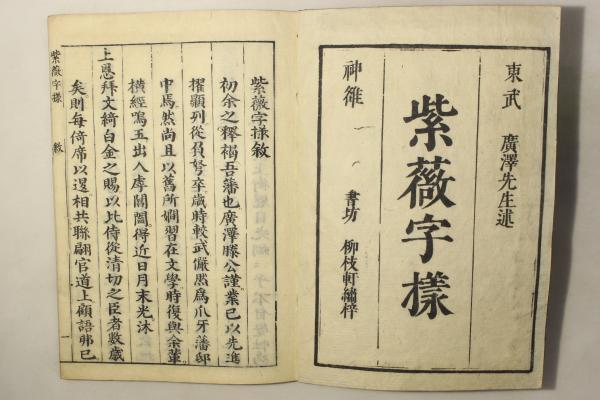 東武 廣澤先生述
紫薇字樣
神雒 書坊 柳枝軒繡梓
紫薇字樣敘
初余之釋褐吾藩也廣澤滕公謹業已以先進
擢顯列從負弩卒歲時較武儼然爲爪牙藩邸
中焉然尚且以舊所嫺習在文學時復與余輩
橫經鳴玉出入虖閶闔得近日月末光沐
上恩拜文綺白金之賜以比侍從清切之臣者數歲
矣則每倚席以還相共聯翩官道上顧語弗已
紫薇字樣 敘